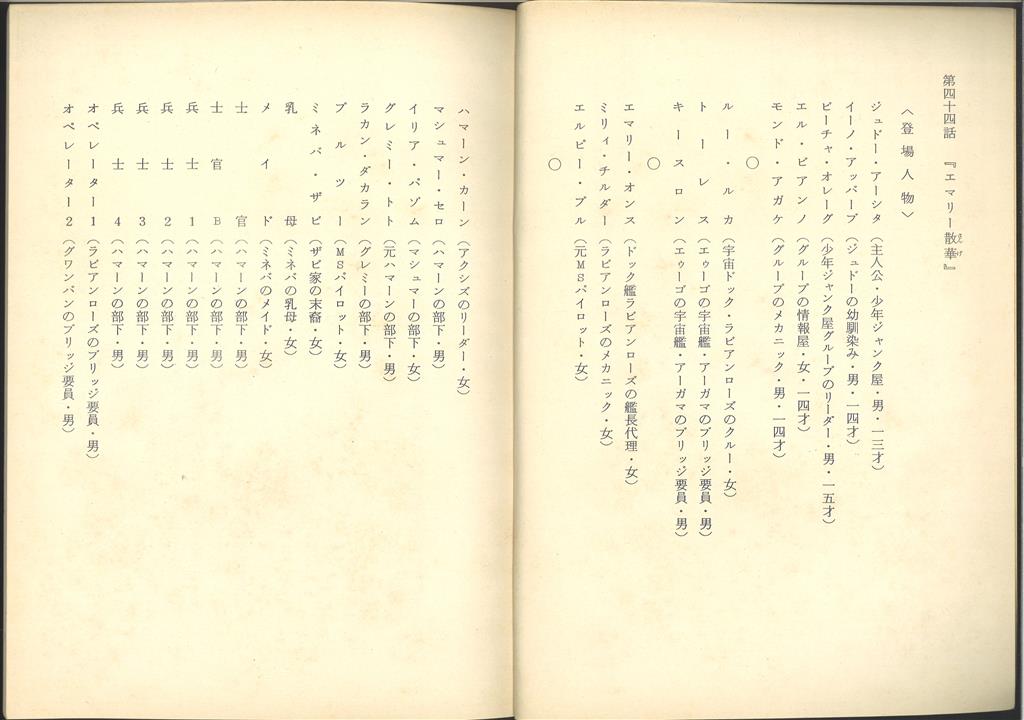 第四十四話　『エマリー散華』
さんげ
〈登場人物〉
ジュドー・アーシタ（主人公・少年ジャンク屋・男・一三才）
イーノ・アッバーブ（ジュドーの幼馴染み・男・一四才）
ビーチャ・オレーグ（少年ジャンク屋グループのリーダー・男・一五才）
エル・ビアンノ（グループの情報屋・女・一四才）
モンド・アガケ（グループのメカニック・男・一四才）
○
ルー・ルカ（宇宙ドック・ラビアンローズのクルー・女）
トーレス（エゥーゴの宇宙艦・アーガマのブリッジ要員・男）
キースロン（エゥーゴの宇宙艦・アーガマのブリッジ要員・男）
○
エマリー・オンス（ドック艦ラビアンローズの艦長代理・女）
ミリィ・チルダー（ラビアンローズのメカニック・女）
エルピー・プル（元MSパイロット・女）
○
ハマーン・カーン（アクシズのリーダー・女）
マシュマー・セロ（ハマーンの部下・男）
イリア・パゾム（マシュマーの部下・女）
グレミー・トト（元ハマーンの部下・男）
ラカン・ダカラン（グレミーの部下・男）
プルツー（MSパイロット・女）
ミネバ・ザビ（ザビ家の末裔・女）
乳母（ミネバの乳母・女）
メイド（ミネバのメイド・女）
士官（ハマーンの部下・男）
士官B（ハマーンの部下・男）
兵士1（ハマーンの部下・男）
兵士2（ハマーンの部下・男）
兵士3（ハマーンの部下・男）
兵士4（ハマーンの部下・男）
オペレーター1（ラビアンローズのブリッジ要員・男）
オペレーター2（グワンバンのブリッジ要員・男）